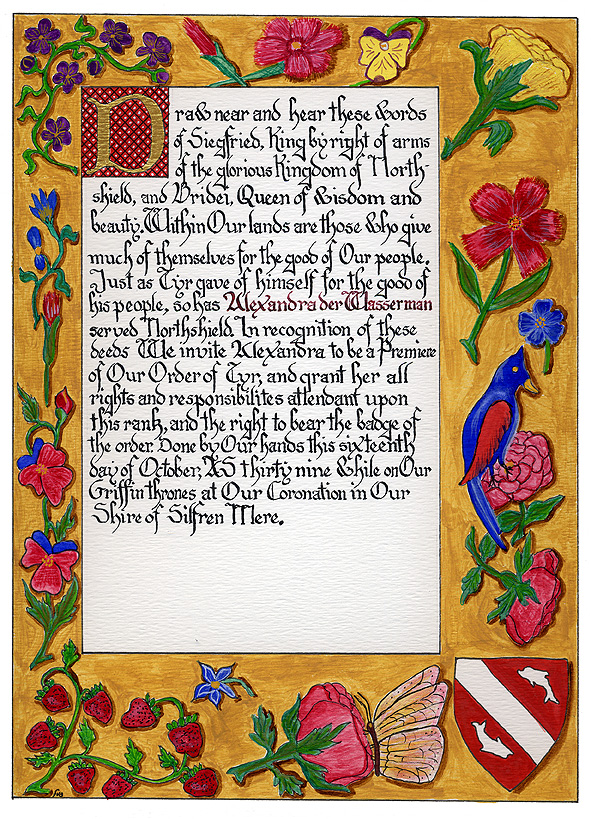 Draw near and hear these words
of Siegfried, King by right of arms
of the glorious Kingdom of North-
shield, and Bridei, Queen of wisdom and
beauty. Within Our lands are those who give
much of themselves for the good of Our people.
Just as Tyr gave of himself for the good of
his people, so has Alexandra der Wasserman
served Northshield. In recognition of these
deeds We invite Alexandra to be a Premiere
of Our Order of Tyr, and grant her all
rights and responsibilites attendant upon
this rank, and the right to bear the badge of
the order. Done by Our hands this sixteenth
day of October, AS thirty nine while on Our
Griffin thrones at Our Coronation in Our
Shire of Silfren Mere.